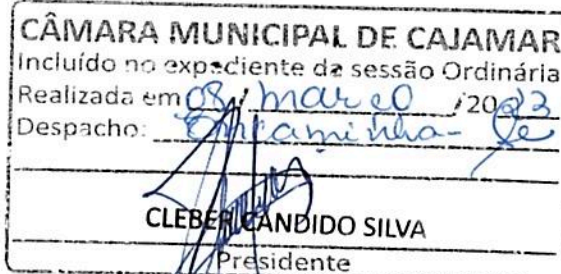 CÂMARA MUNICIPAL DE CAJAMAR
Incluído no expediente da sessão Ordinária
Realizada em 08 / março / 2023
Despacho: Encaminha-se
CLEBER CANDIDO SILVA
Presidente